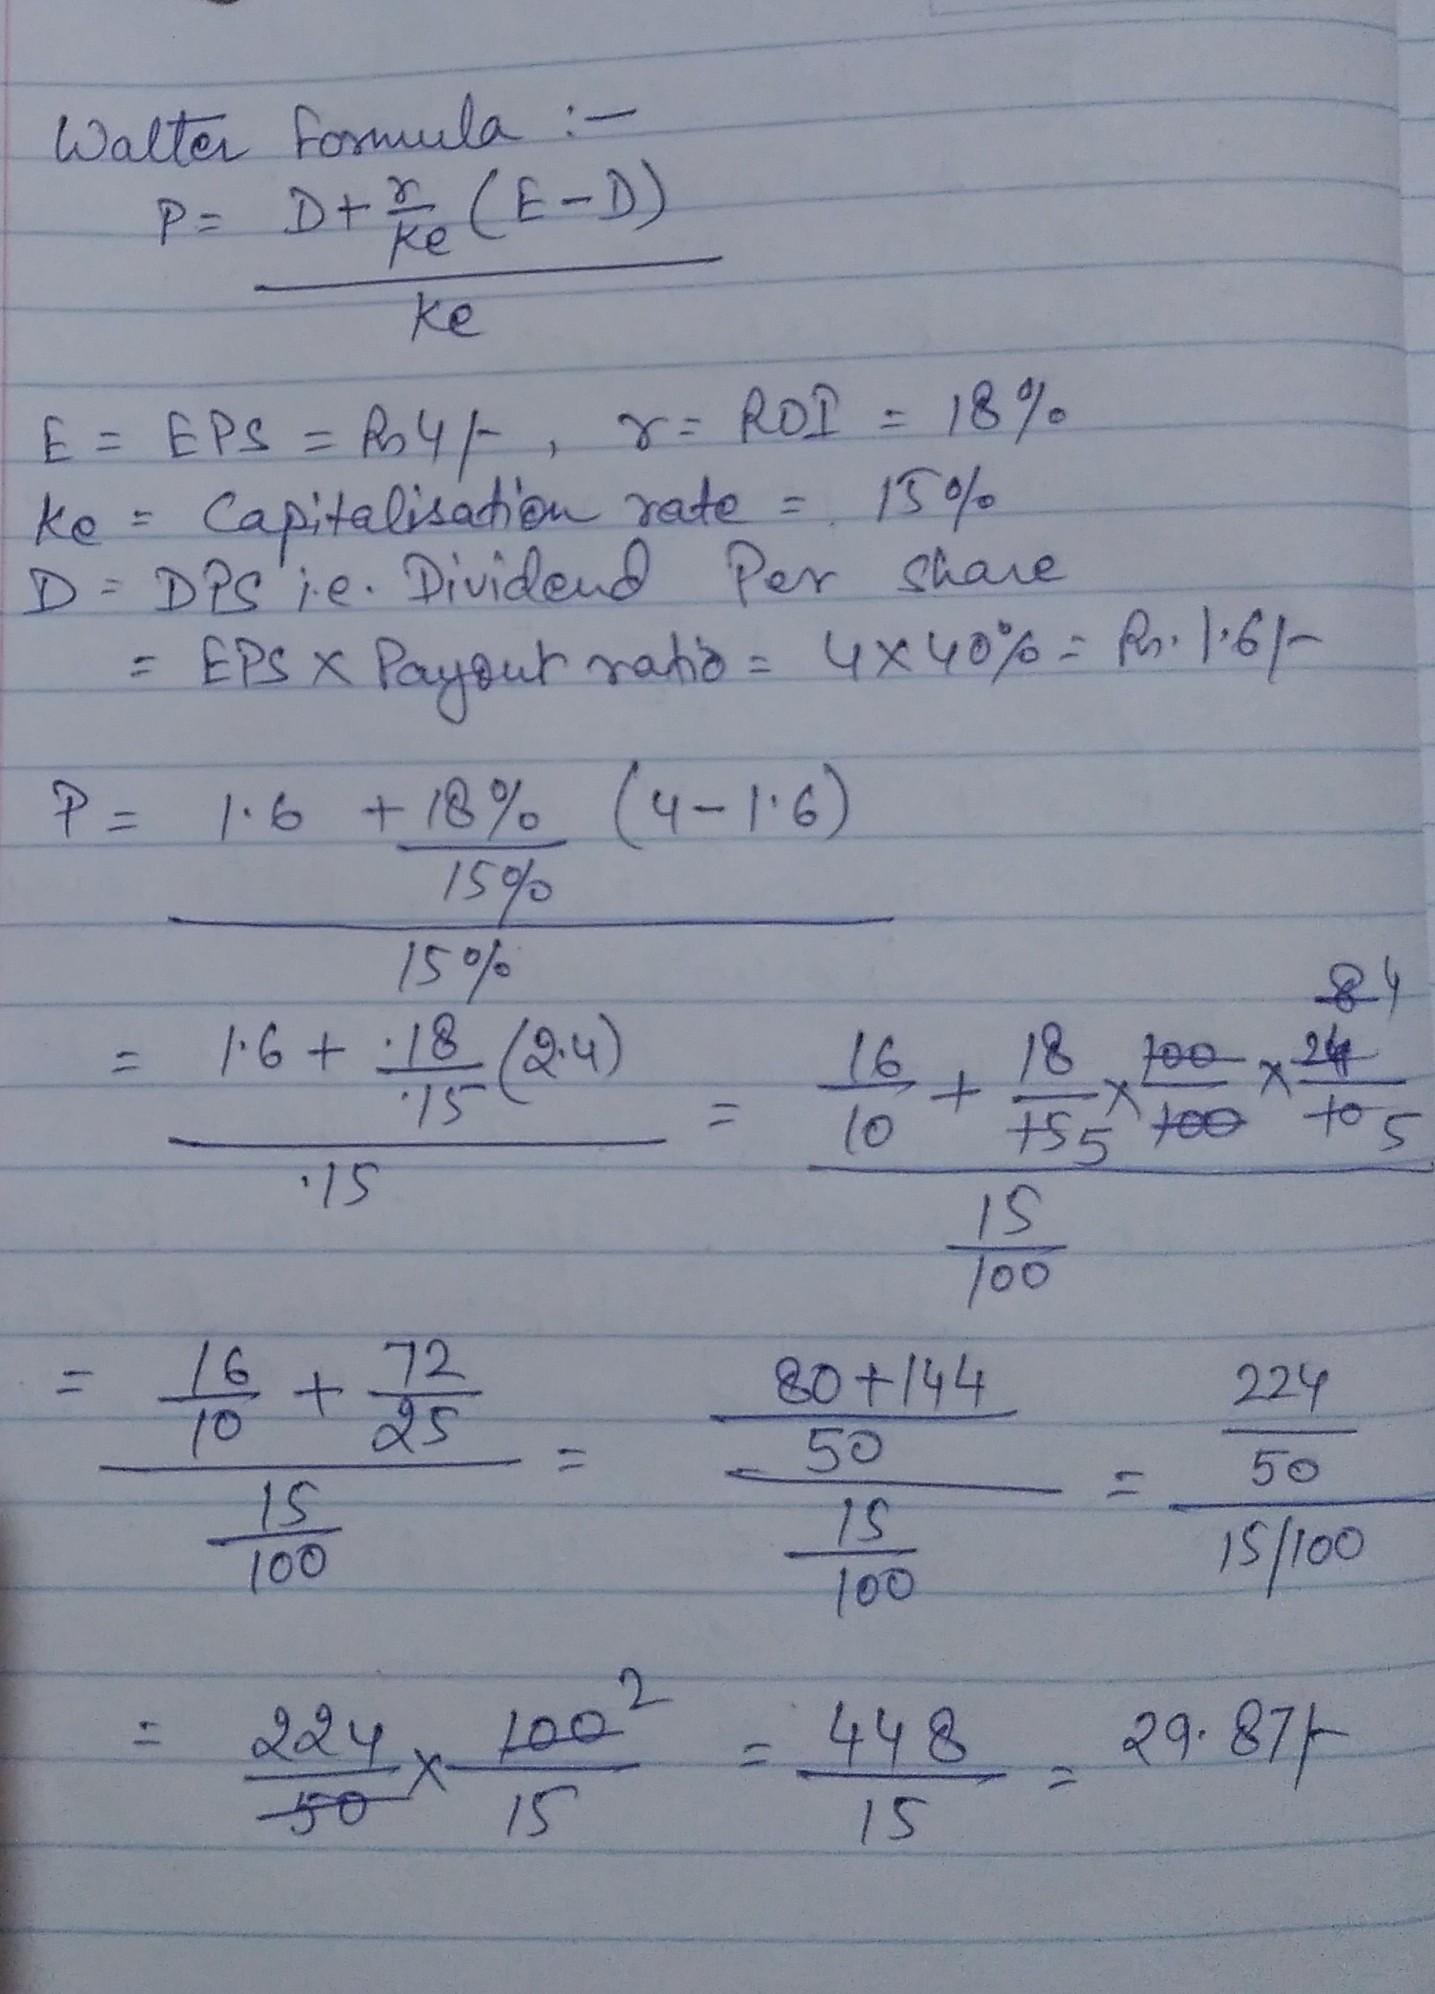 Walter Formula :-
P = D + r/ke (E - D)
ke
E = EPS = Rs 4/- , r = ROI = 18%
Ke = Capitalisation rate = 15%
D = DPS i.e. Dividend Per share
= EPS x Payout ratio = 4 x 40% = Rs. 1.6/-
P = 1.6 + 18%/15% (4 - 1.6)
15%
= 1.6 + .18/.15 (2.4) = 16/10 + 18/15 5 x 100/100 x 24/10 8 4 5
.15 15/100
= 16/10 + 72/25 = 80+144/50 = 224/50
15/100 15/100 15/100
= 224/50 x 100 2/15 = 448/15 = 29.87/-